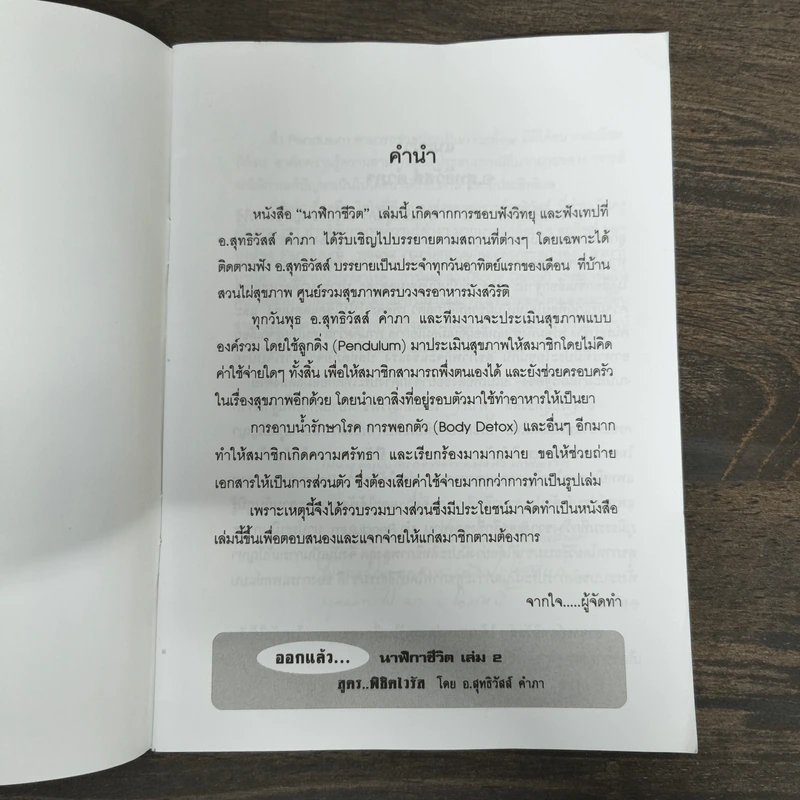 คำนำ
หนังสือ “นาฬิกาชีวิต” เล่มนี้ เกิดจากการชอบฟังวิทยุ และฟังเทปที่
อ.สุทธิวัสส์ คำภา ได้รับเชิญไปบรรยายตามสถานที่ต่างๆ โดยเฉพาะได้
ติดตามฟัง อ.สุทธิวัสส์ บรรยายเป็นประจำทุกวันอาทิตย์แรกของเดือน ที่บ้าน
สวนไผ่สุขภาพ ศูนย์รวมสุขภาพครบวงจรอาหารมังสวิรัติ
ทุกวันพุธ อ.สุทธิวัสส์ คำภา และทีมงานจะประเมินสุขภาพแบบ
องค์รวม โดยใช้ลูกดิ่ง (Pendulum) มาประเมินสุขภาพให้สมาชิกโดยไม่คิด
ค่าใช้จ่ายใดๆ ทั้งสิ้น เพื่อให้สมาชิกสามารถพึ่งตนเองได้ และยังช่วยครอบครัว
ในเรื่องสุขภาพอีกด้วย โดยนำเอาสิ่งที่อยู่รอบตัวมาใช้ทำอาหารให้เป็นยา
การอาบน้ำรักษาโรค การพอกตัว (Body Detox) และอื่นๆ อีกมาก
ทำให้สมาชิกเกิดความศรัทธา และเรียกร้องมามากมาย ขอให้ช่วยถ่าย
เอกสารให้เป็นการส่วนตัว ซึ่งต้องเสียค่าใช้จ่ายมากกว่าการทำเป็นรูปเล่ม
เพราะเหตุนี้จึงได้รวบรวมบางส่วนซึ่งมีประโยชน์มาจัดทำเป็นหนังสือ
เล่มนี้ขึ้นเพื่อตอบสนองและแจกจ่ายให้แก่สมาชิกตามต้องการ
จากใจ.....ผู้จัดทำ
ออกแล้ว... นาฬิกาชีวิต เล่ม 2
สูตร..พิชิตไวรัส โดย อ.สุทธิวัสส์ คำภา